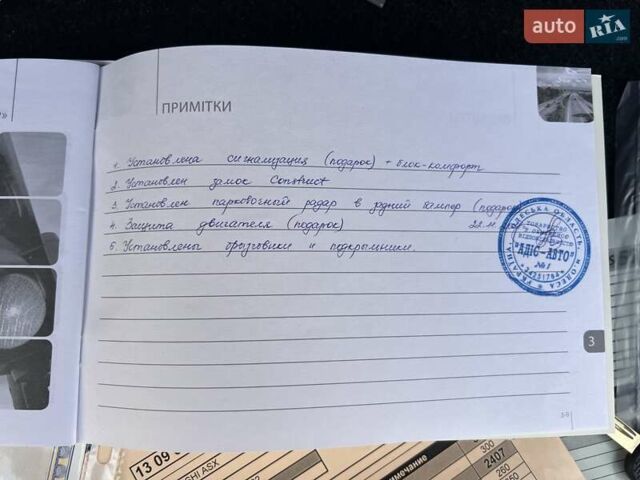 auto RIA .com
ПРИМІТКИ
1. Установлена сигнализация (подарок) + блок-комфорт
2. Установлен замок Construct
3. Установлен парковочный радар в задний бампер (подарок)
4. Защита двигателя (подарок)
5. Установлены брызговики и подкрылники.
ОДЕСЬКА ОБЛАСТЬ, м.ОДЕСА УКРАЇНА
"АДІС-АВТО"
№1
3
3-9
13 09
ASX
Примечание
300
2407
260